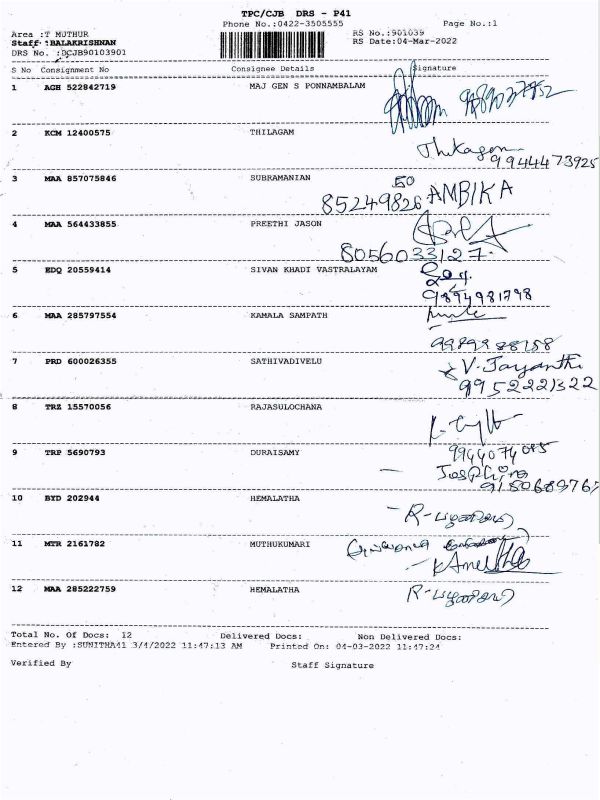 TPC/CJB DRS - P41
Phone No.:0422-3505555 Page No.:1
Area :T MUTHUR RS No.:901039
Staff :BALAKRISHNAN RS Date:04-Mar-2022
DRS No. :DCJB90103901
S No Consignment No Consignee Details Signature
1 AGH 522842719 MAJ GEN S PONNAMBALAM
2 KCM 12400575 THILAGAM
9944473925
3 MAA 857075846 SUBRAMANIAN 50
85249826 AMBIKA
4 MAA 564433855 PREETHI JASON
8056033127.
5 EDQ 20559414 SIVAN KHADI VASTRALAYAM
9894981798
6 MAA 285797554 KAMALA SAMPATH
7 PRD 600026355 SATHIVADIVELU V. Jayanthi
9952221322
8 TRZ 15570056 RAJASULOCHANA
9 TRP 5690793 DURAISAMY
10 BYD 202944 HEMALATHA
11 MTR 2161782 MUTHUKUMARI
12 MAA 285222759 HEMALATHA
Total No. Of Docs: 12 Delivered Docs: Non Delivered Docs:
Entered By :SUNITHA41 3/4/2022 11:47:13 AM Printed On: 04-03-2022 11:47:24
Verified By Staff Signature